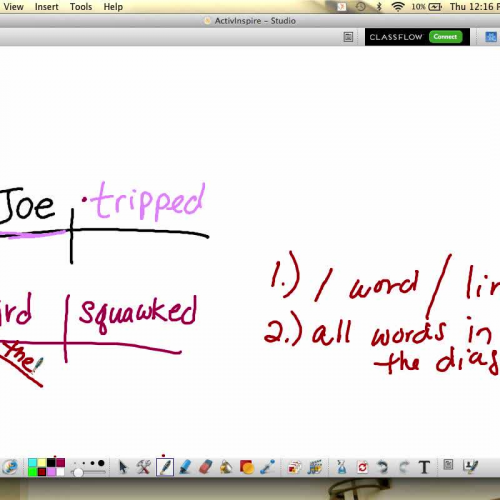 View Insert Tools Help 10% Thu 12:16
ActivInspire - Studio
CLASSFLOW Connect
Joe tripped
ird squawked
the
1.) 1 word / lin
2.) all words in
the diag
T